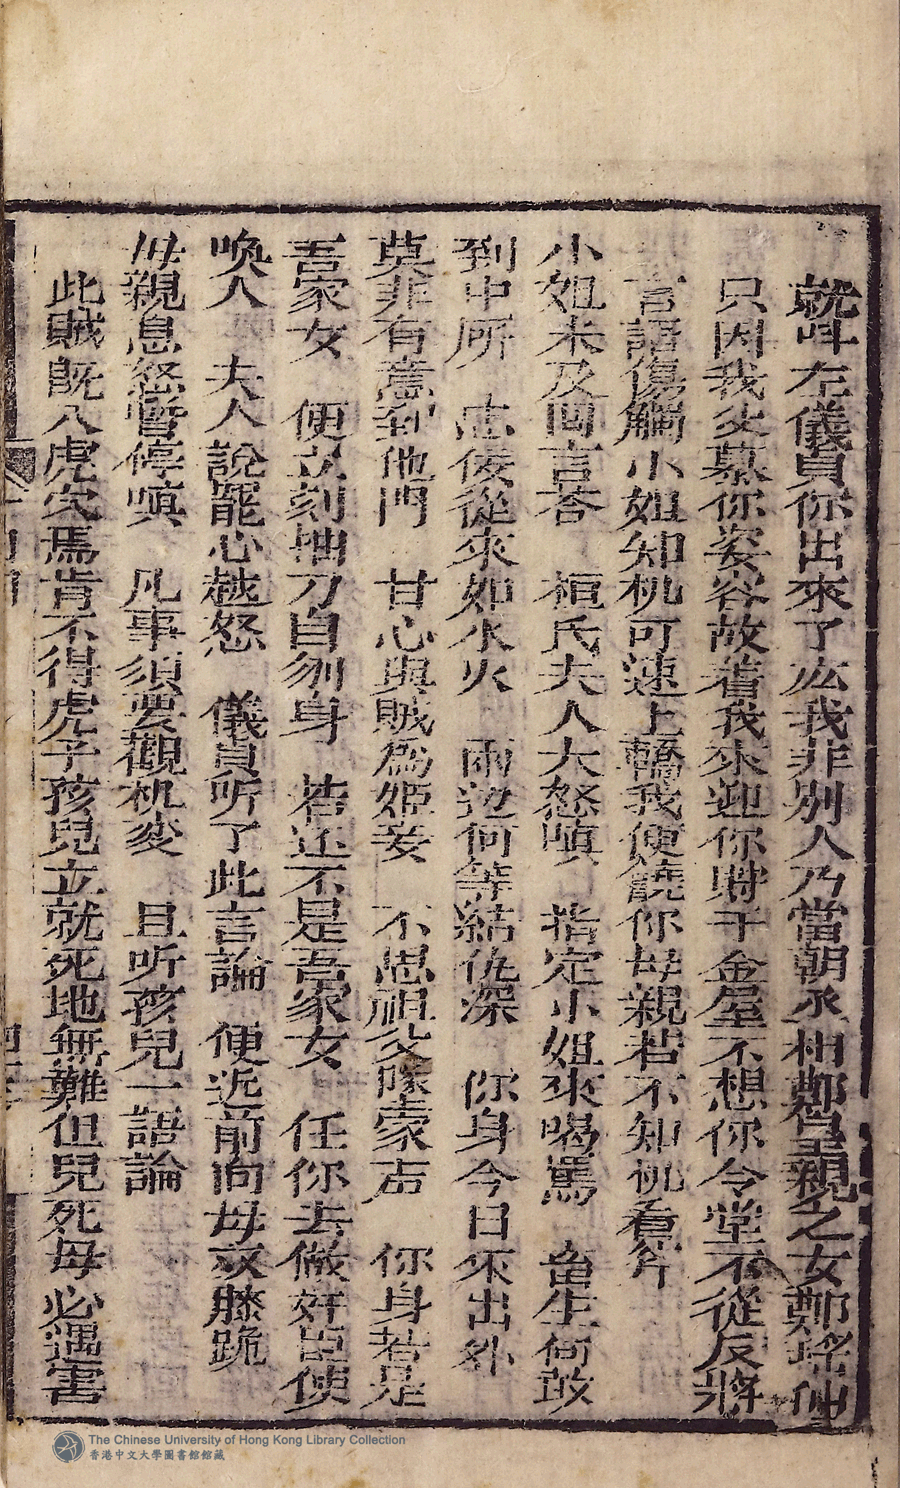 就叫左儀貞你出來了広我非別人乃當朝丞相鄭皇親之女鄭瑤仙
只因我父慕你姿容故着我來迎你貯千金屋不想你令堂不從反將
言語傷觸小姐知机可速上轎我便饒你母親若不知机看斧
小姐未及回言荅　桓氏夫人大怒嗔　指定小姐來喝罵　畜生何敢
到中所　忠佞從來如水火　兩边何等結仇深　你身今日來出外
莫非有意到他門　甘心與賊為姬妾　不思祖父墜家声　你身若是
吾家女　便立刻抽刀自刎身　若还不是吾家女　任你去做奸臣使
喚人　夫人說罷心越怒　儀貞听了此言論　便近前向母双膝跪
母親息怒暫停嗔　凡事須要觀机変　且听孩兒一語論
此賊既入虎穴焉肯不得虎子孩兒立就死地無難但兒死母必遇害
The Chinese University of Hong Kong Library Collection
香港中文大學圖書館館藏